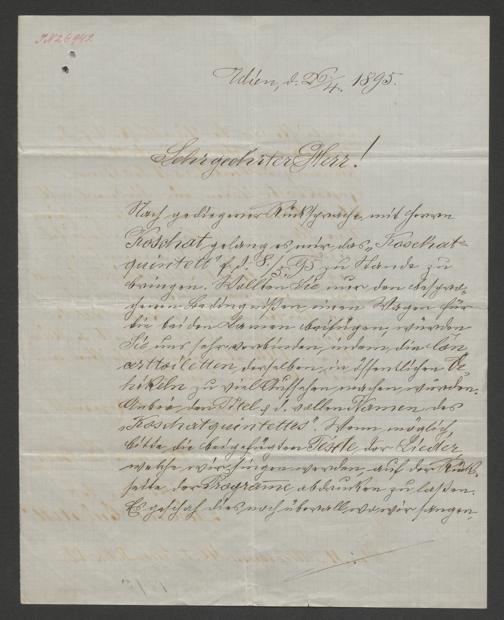 I.N.26942
Wien, d. 26/4. 1895.
Sehr geehrter Herr!
Nach gediegener Rücksprache mit Herrn
Koschat gelang es mir das „Koschat-
quintett" f. d. 8./5. 95 zu Stande zu
bringen. Wollten Sie nur den bespro-
chenen Bedingnißen einen Wagen für
die beiden Damen beifügen, würden
Sie uns sehr verbinden, indem die Con-
certtoiletten derselben, in öffentlichen Ve-
hikeln zu viel Aufsehen machen würden.
Anbei den Titel u. d. vollen Namen des
„Koschatquintettes". Wenn möglich
bitte die beigefügten Texte der Lieder,
welche wir singen werden, auf der Rück-
seite der Programe abdrucken zu laßen.
Es geschah dies noch überall wo wir sangen.